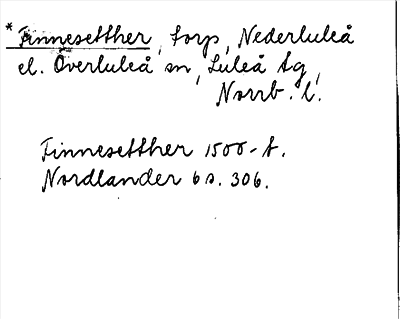 *Finnesetther, torp, Nederluleå
el. Överluleå sn, Luleå tg,
Norrb. l.
Finnesetther 1500-t.
Nordlander 6 s. 306.